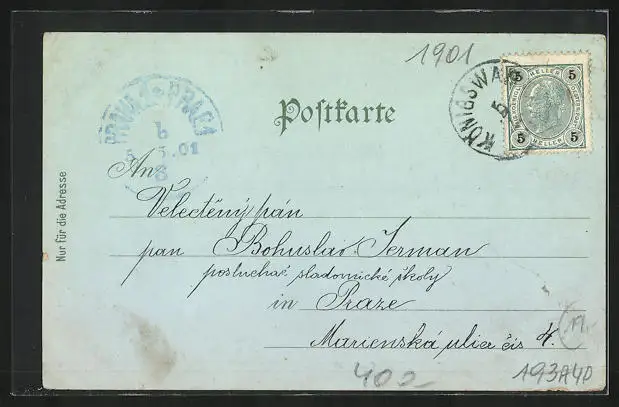 1901
5 HELLER 5
5 HELLER 5
KÖNIGSWAR
PRAHA PRAGA
5. 01
Postkarte
An
Nur für die Adresse
Velectěný pán
pan Bohuslav Jerman
posluchač sladovnické školy
in Praze
Marienská ulice čís 4.
19.
400
193A4D